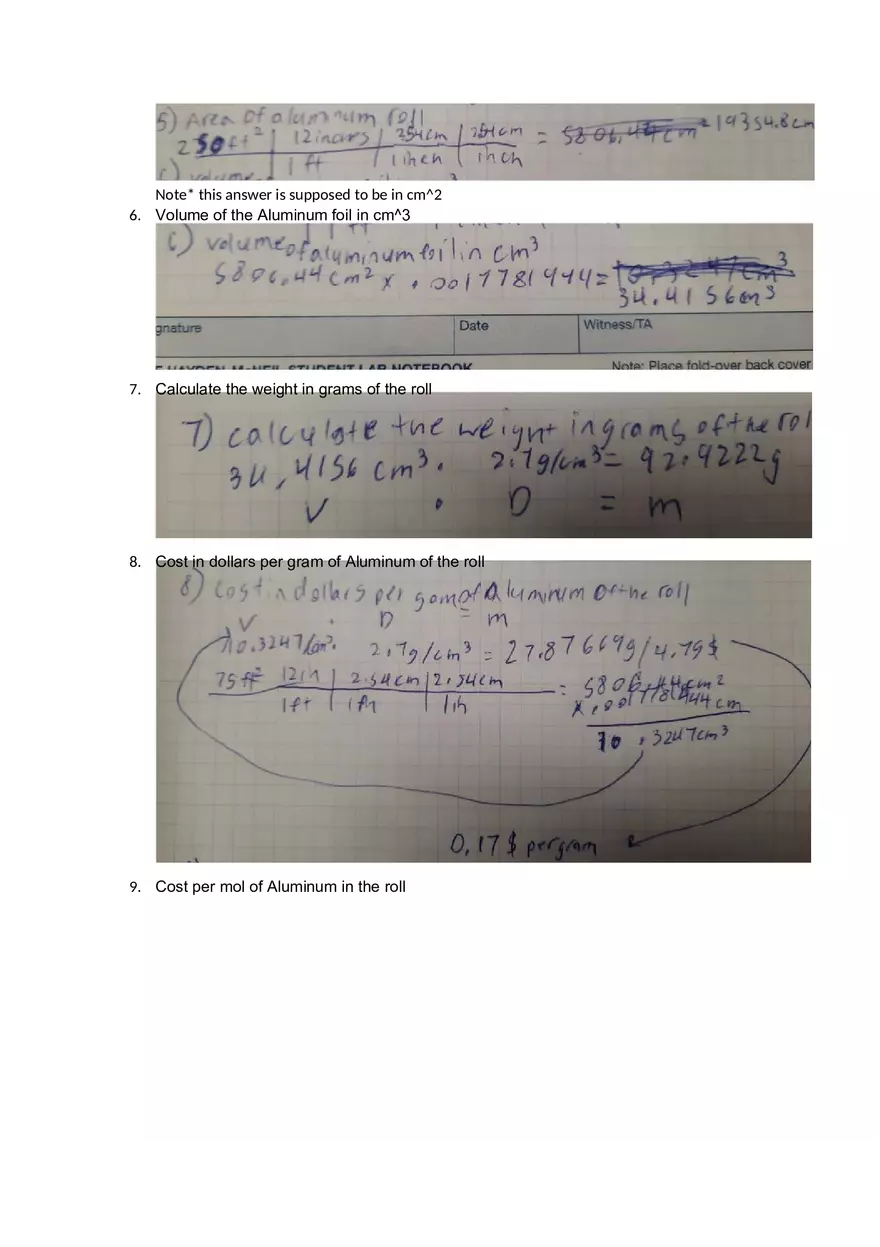 5) Area of aluminum roll
250ft² | 12 inches | 2.54cm | 2.54cm = 5806.44cm 19354.8cm
1 ft | 1 inch | inch
Note* this answer is supposed to be in cm^2
6. Volume of the Aluminum foil in cm^3
6) volume of aluminum foil in cm³
5806.44cm² x .001778 1444 = 10.3247cm³
34.4156cm³
gnature Date Witness/TA
STUDENT LAB NOTEBOOK Note: Place fold-over back cover
7. Calculate the weight in grams of the roll
7) calculate the weight in grams of the rol
34,4156 cm³ . 2.7g/cm³ = 92.9222g
V . D = m
8. Cost in dollars per gram of Aluminum of the roll
8) Cost in dollars per gam of Aluminum of the roll
V . D = m
10.3247cm³ . 2.7g/cm³ = 27.87669g/4.79$
75ft² | 12in | 2.54cm | 2.54cm = 5806.44cm²
1ft | 1in | 1in x .001778 1444cm
10.3247cm³
0.17$ per gram
9. Cost per mol of Aluminum in the roll